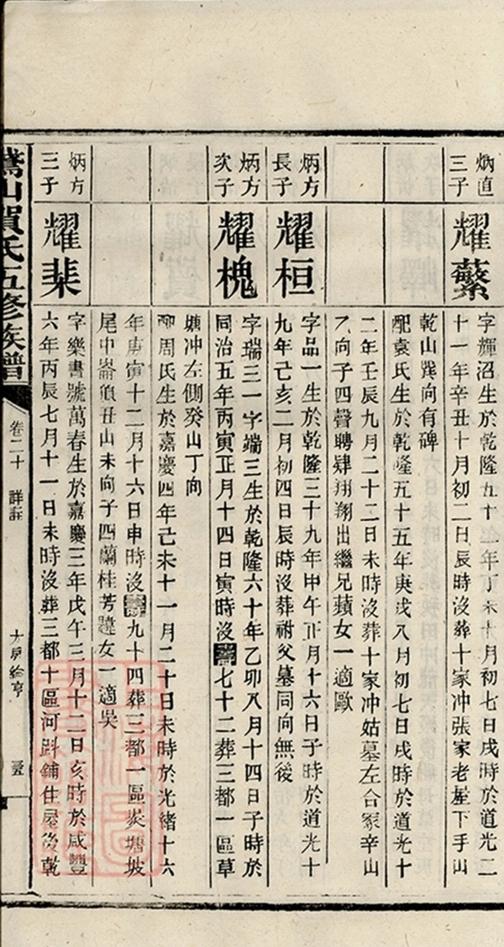 炳直
三子
耀蘩
字輝沼生於乾隆五十二年丁未十月初七日戌時於道光二
十一年辛丑十月初二日辰時沒葬十家冲張家老屋下手山
乾山巽向有碑
配袁氏生於乾隆五十五年庚戌八月初七日戌時於道光十
二年壬辰九月二十二日未時葬十家冲姑墓左合冢辛山
乙向子四聲聘肆翔翔出繼兄蘋女一適歐
炳方
長子
耀桓
字品一生於乾隆三十九年甲午正月十六日子時於道光十
九年己亥二月初四日辰時沒葬祔父墓同向無後
炳方
次子
耀槐
字瑞三一字端三生於乾隆六十年乙卯八月十四日子時於
同治五年丙寅正月十四日寅時沒壽七十二葬三都一區草
塘冲左側癸山丁向
周氏生於嘉慶四年己未十一月二十日未時於光緒十六
年庚寅十二月十六日申時沒壽九十四葬三都一區炭塘坡
尾中崙隕丑山未向子四蘭桂芳女一適吳
炳方
三子
耀棐
字樂書號萬春生於嘉慶三年戊午三月十二日亥時於咸豐
六年丙辰七月十一日未時沒葬三都十區河鋪住屋後乾
山賀氏五修族譜
卷二十
詳註